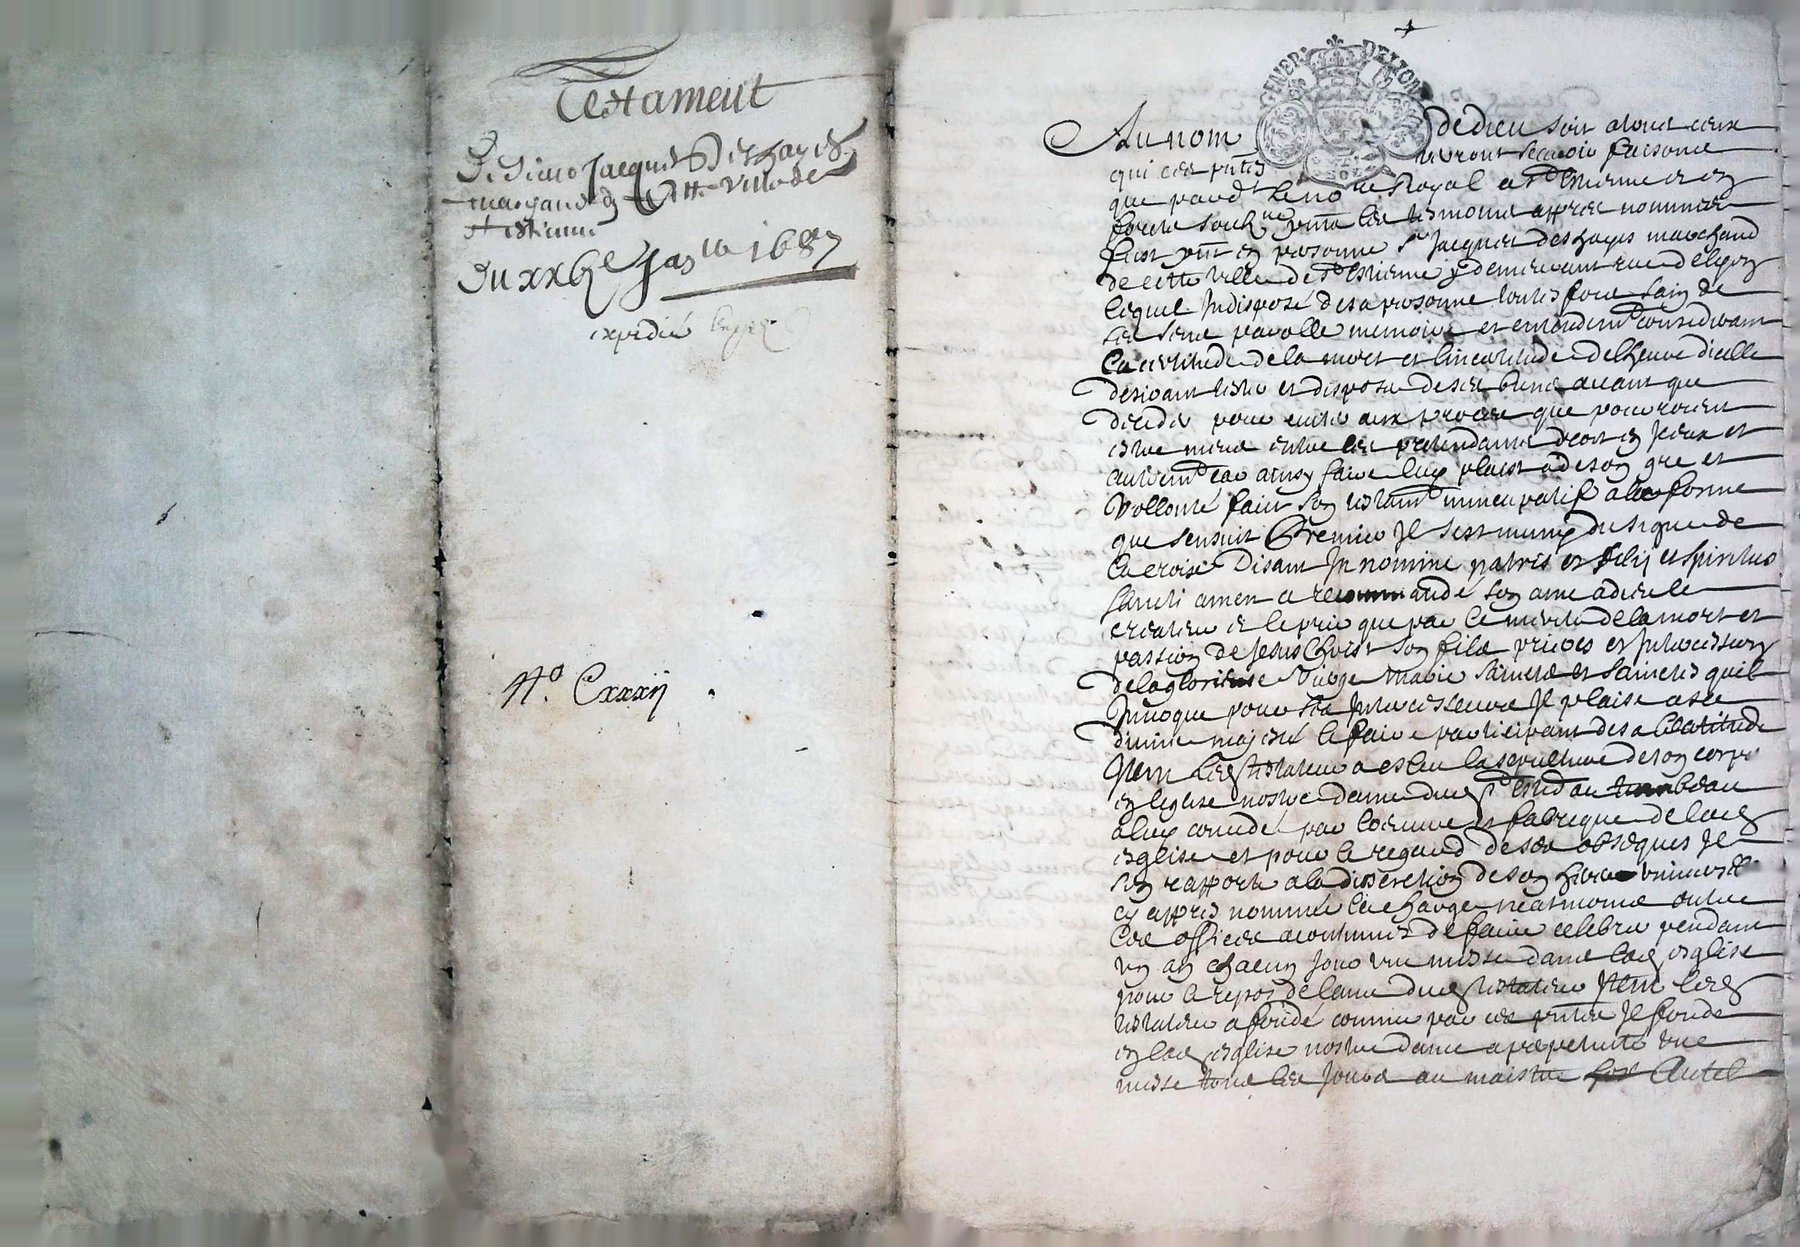 Testament
De Sieur Jacques Deshayes
marchand de cette ville de
St Estienne
Du xxbe 1687
expedié
No. Cxxxij
GENER DE LION
Au nom de dieu soit a tous ceux
qui ces pntes verront scavoir faisons
que pardt le nore Royal a St Estienne et en
forest soubne pnts les tesmoins appres nommes
fust pnt en personne sr Jacques deshayes marchand
de cette ville de St Estienne y demeurant rue de lyon
lequel Indisposé de sa personne toutes fois sain de
ses sens parolle memoire et entendemt considerant
la certitude de la mort et lincertitude de lheure dicelle
desirant tester et disposer de ses biens avant que
deceder pour eviter aux proces que pourroient
estre meus entre les pretendants droit en Iceux et
autremt car ainsy faire luy plaist a de son gre et
vollonté faict son testamt nuncupatif a la forme
que sensuit Premier Il sest muny du signe de
la croix Disant In nomine patris et filij et spiritus
sancti amen a recommandé son ame a dieu le
createur et le prie que par le merite de la mort et
passion de Jesus Christ son fils prieres et Intercession
de la glorieuse vierge marie saincts et sainctes quil
Invoque pour ses Intercesseurs Il plaise a sa
divine majesté le faire participant de sa beatitude
Item led testateur a esleu la sepulture de son corps
en leglise nostre dame dud St Estne au tumbeau
a luy concedé par loeuvre et fabrique de lad
esglise et pour le regard de ses obseques Il
sen rapporte a la discretion de son universel
cy appres nommée la charge neatmoins outre
les offices acoutumes de faire celebrer pendant
un an chacun jour une messe dans lad esglise
pour le repos de lame dud testateur Item led
testateur a fondé comme par ces pntes Il fonde
en lad esglise nostre dame a perpetuité une
messe tous les Jours au maistre Autel